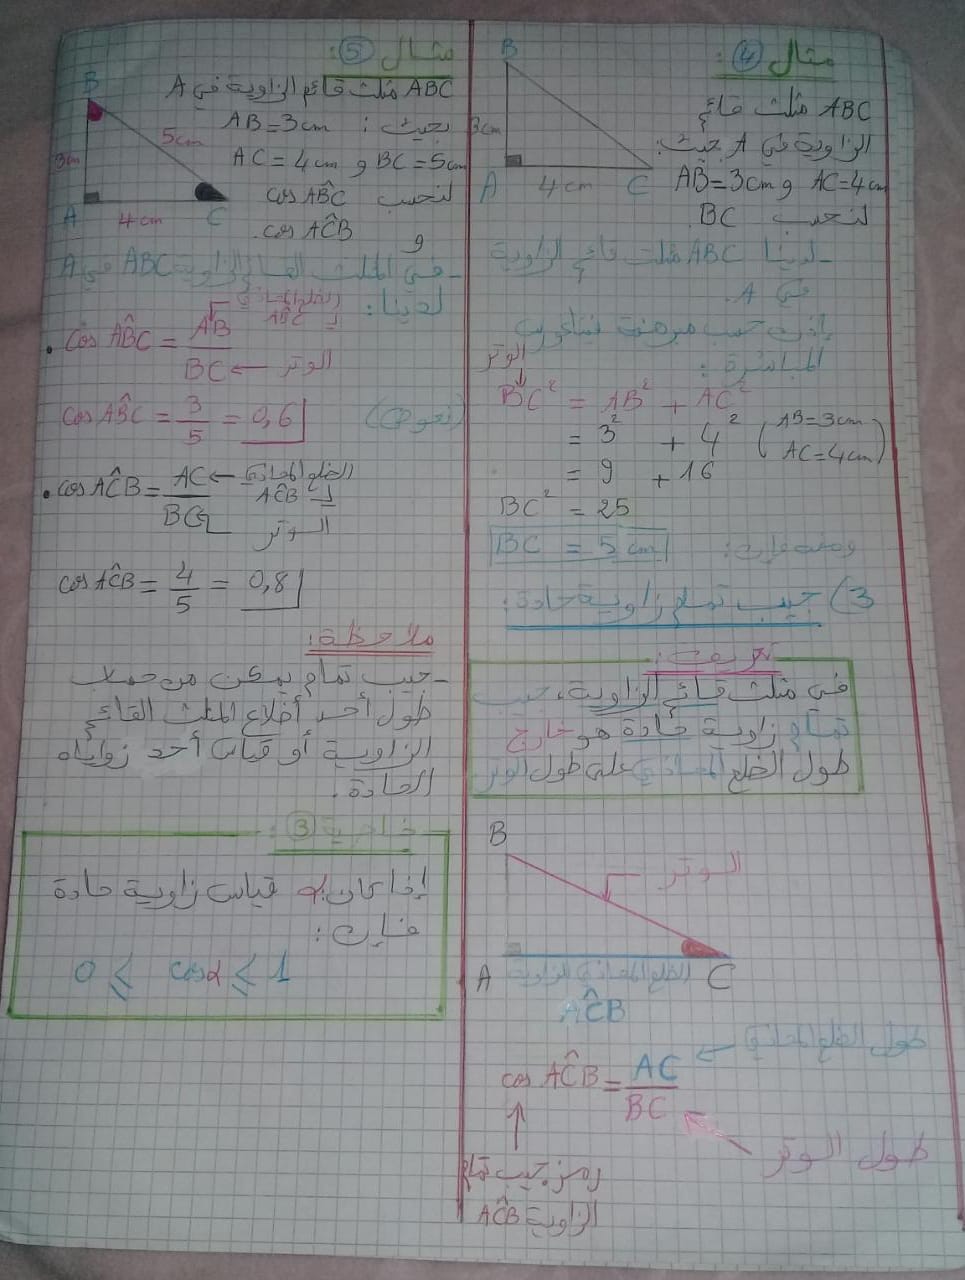 مثال ④ :
ABC مثلث قائم
الزاوية في A حيث:
AB=3cm و AC=4cm
لنحسب BC
B
3cm
A 4cm C
- لدينا ABC مثلث قائم الزاوية
في A.
إذن حسب مبرهنة فيتاغورت
المباشرة :
الوتر
BC² = AB² + AC²
= 3² + 4² (AB=3cm
AC=4cm)
= 9 + 16
BC² = 25
ومنه فإن: BC = 5 cm
3) جيب تمام زاوية حادة:
تعريف :
في مثلث قائم الزاوية، جيب
تمام زاوية حادة هو خارج
طول الضلع المحاذي على طول الوتر
B
الوتر
A C
الضلع المحاذي للزاوية
AĈB
طول الضلع المحاذي
cos AĈB = AC/BC
طول الوتر
رمز جيب تمام
الزاوية AĈB
مثال ⑤ :
ABC مثلث قائم الزاوية في A
بحيث : AB=3cm
BC=5cm و AC=4cm
لنحسب cos AB̂C
و cos AĈB
B
5cm
3cm
A 4cm C
- في المثلث القائم الزاوية ABC في A
لدينا :
الضلع المحاذي
لـ AB̂C
• cos AB̂C = AB/BC ← الوتر
cos AB̂C = 3/5 = 0,6 (تعويض)
• cos AĈB = AC/BC ← الضلع المحاذي
لـ AĈB
الوتر
cos AĈB = 4/5 = 0,8
ملاحظة :
- جيب تمام يمكن من حساب
طول أحد أضلاع المثلث القائم
الزاوية أو قياس أحد زواياه
الحادة.
خاصية ③ :
إذا كان α قياس زاوية حادة
فإن :
0 ⩽ cosα ⩽ 1